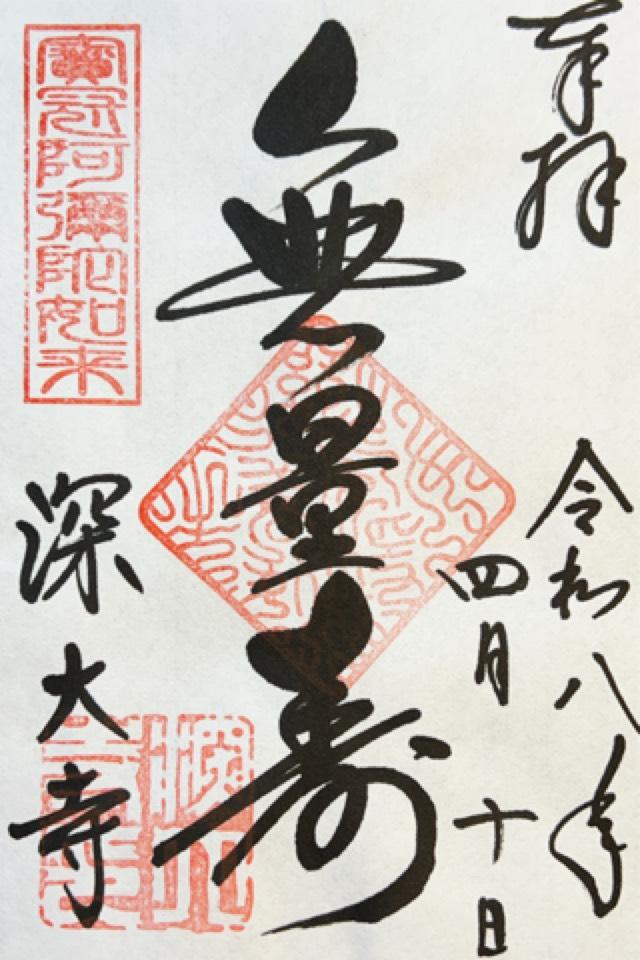 奉拝
令和八年
四月十日
無量寿
寶冠阿彌陀如来
深大寺